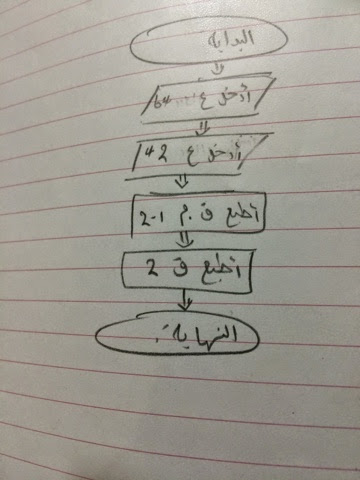 البداية
أدخل ع
أدخل ع 2
اطبع ق . م 1-2
اطبع ق 2
النهاية.